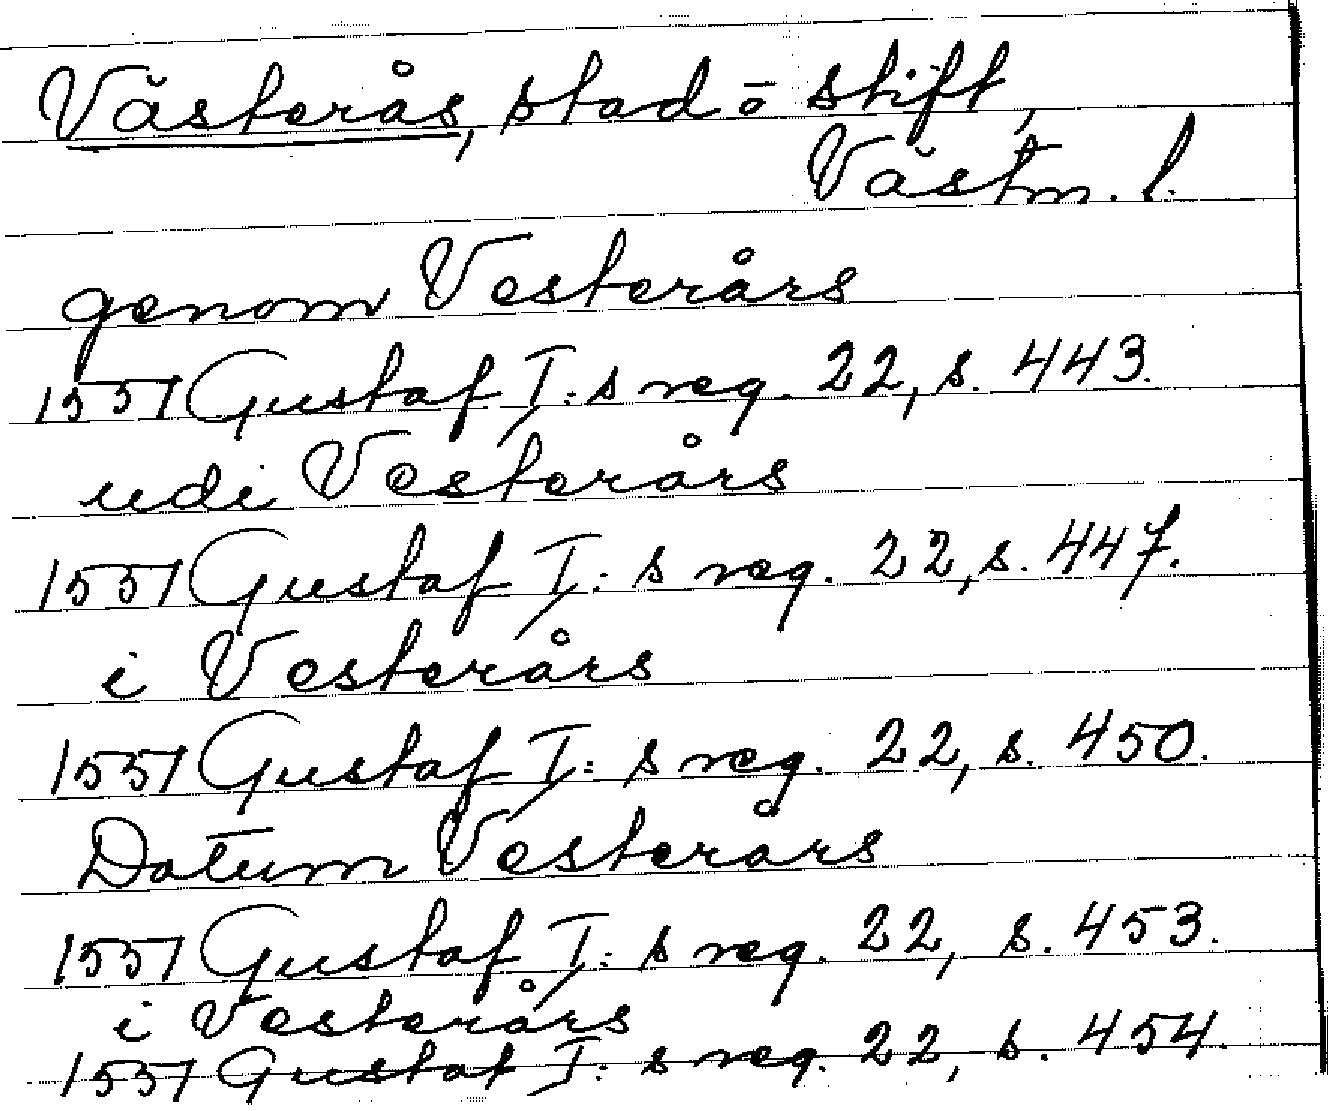 Västerås, stad ō stift,
Västm. l.
genom Vesterårs
1551 Gustaf I:s reg. 22, s. 443.
udi Vesterårs
1551 Gustaf I:s reg. 22, s. 447.
i Vesterårs
1551 Gustaf I:s reg. 22, s. 450.
Datum Vesterårs
1551 Gustaf I:s reg. 22, s. 453.
i Vesterårs
1551 Gustaf I:s reg. 22, s. 454.